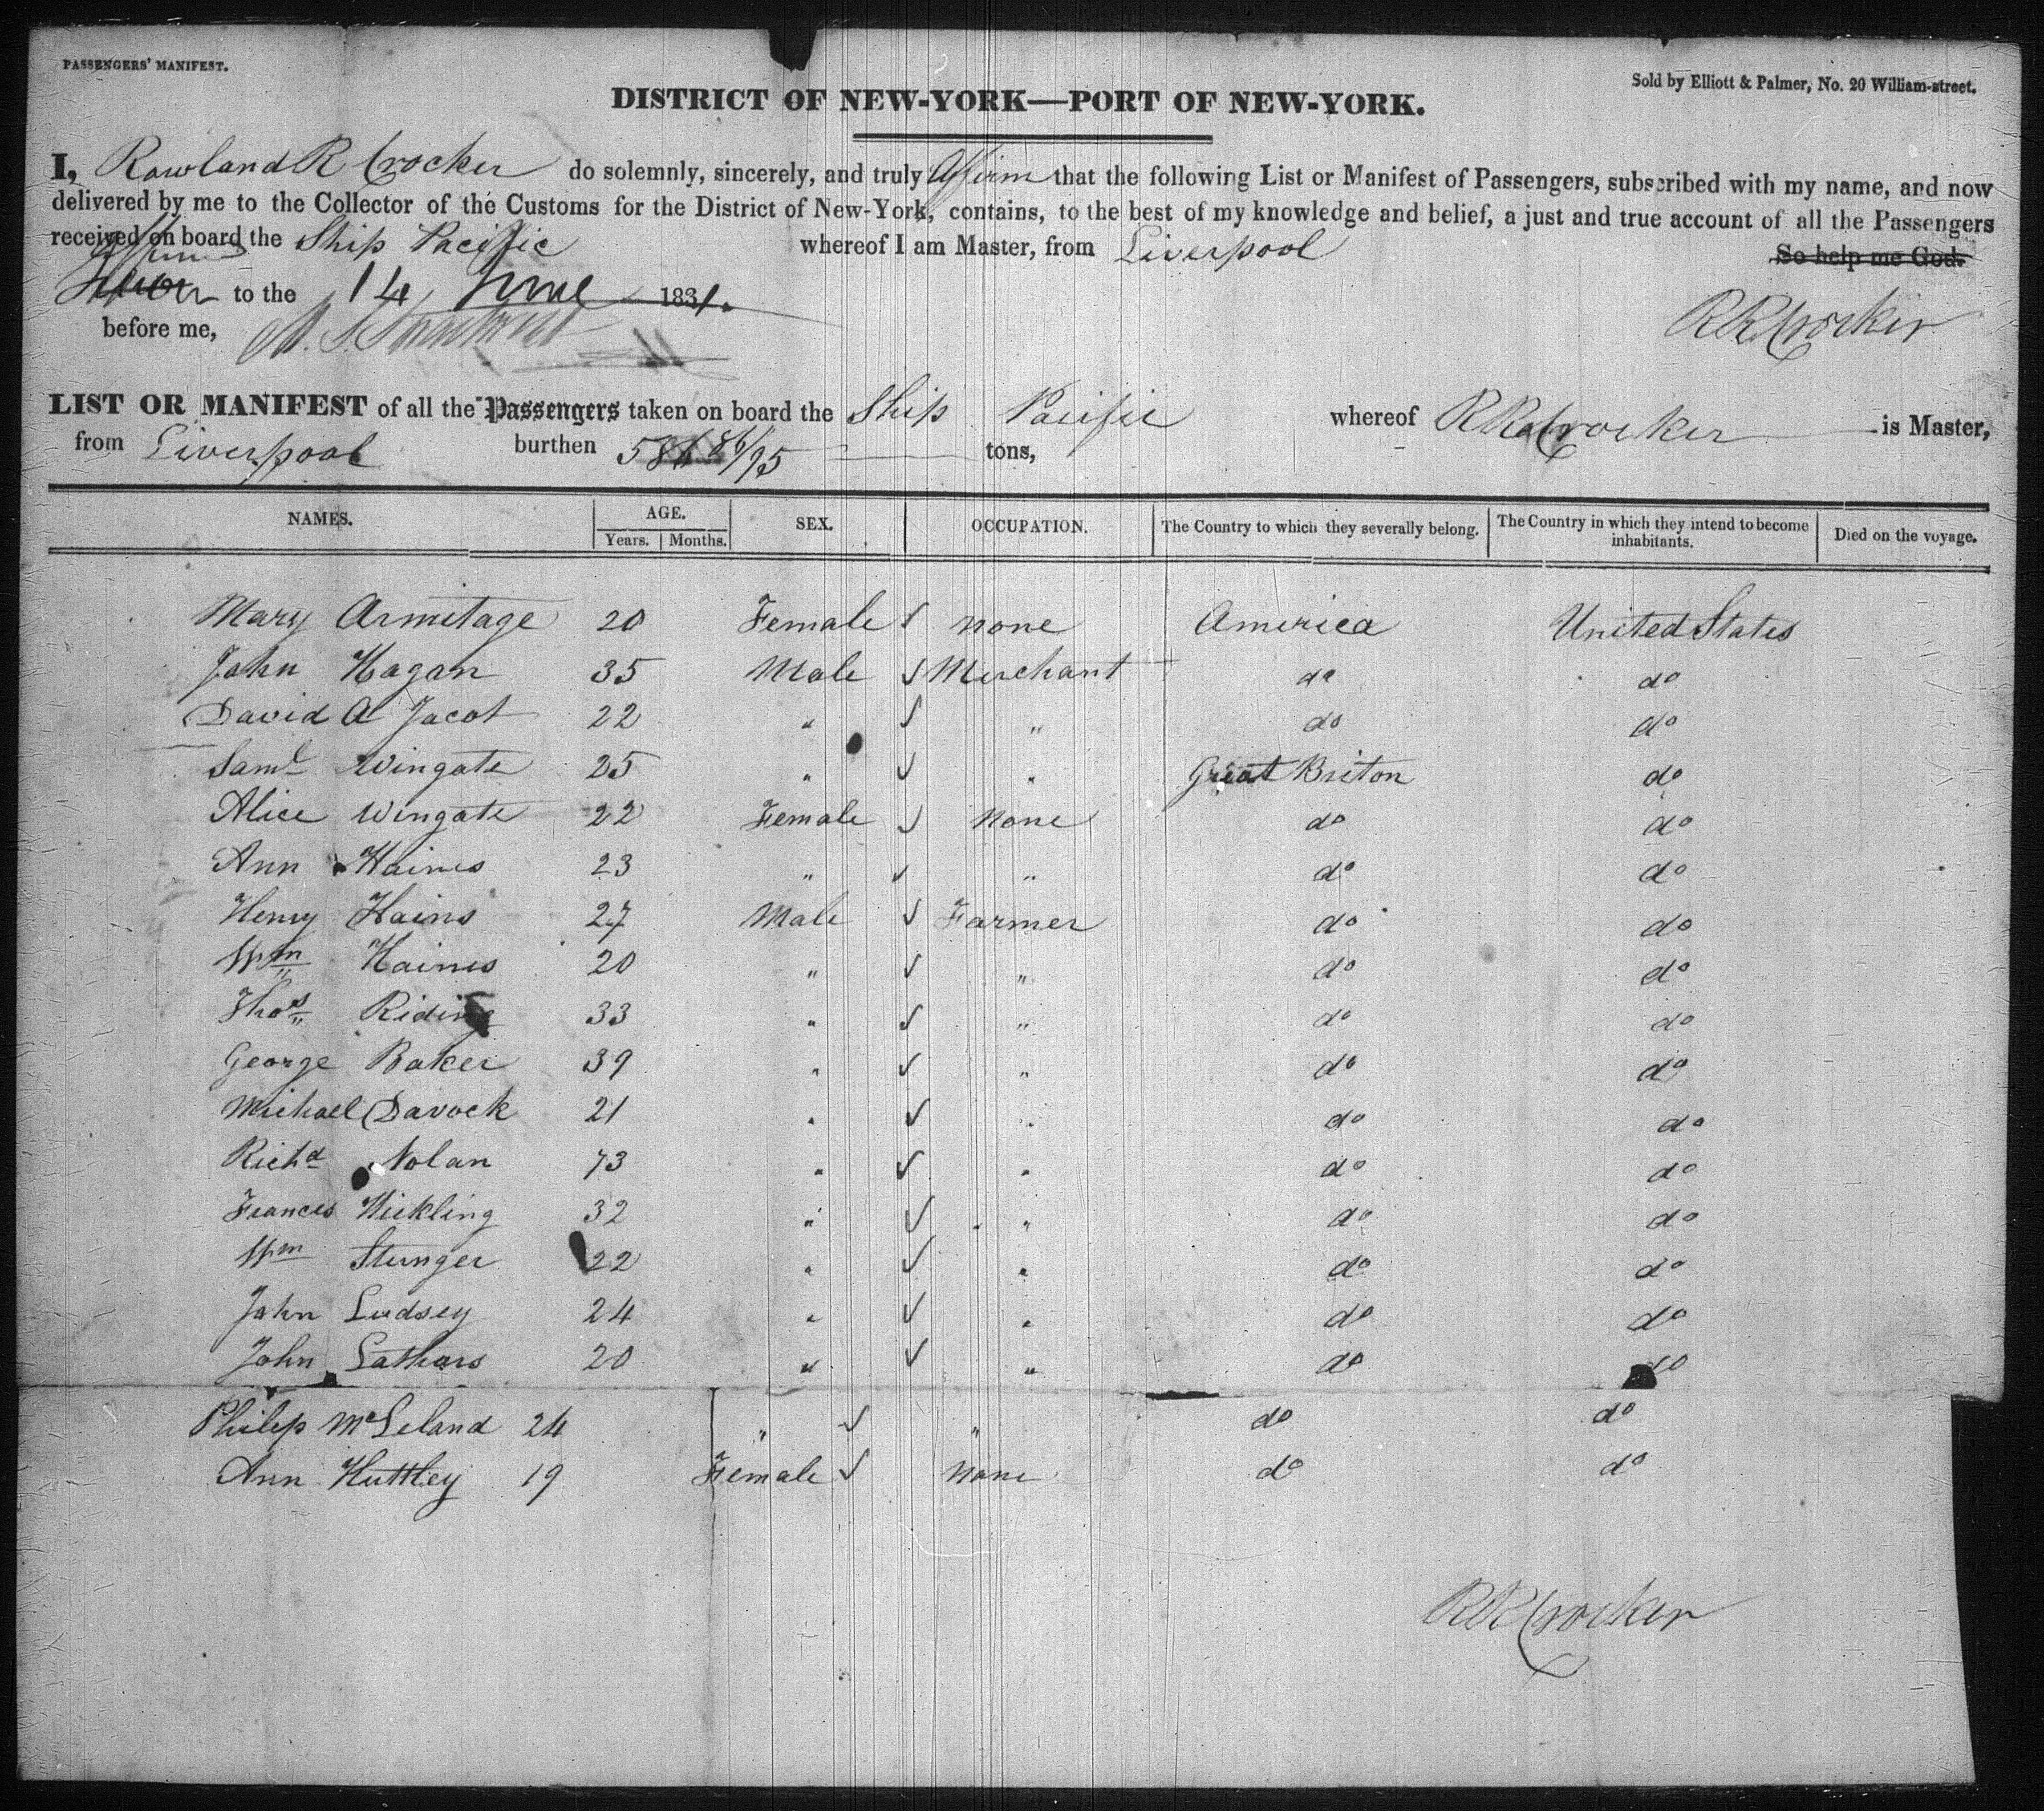 PASSENGERS' MANIFEST.
Sold by Elliott & Palmer, No. 20 William-street.
DISTRICT OF NEW-YORK—PORT OF NEW-YORK.
I, Rowland R Crocker do solemnly, sincerely, and truly Affirm that the following List or Manifest of Passengers, subscribed with my name, and now
delivered by me to the Collector of the Customs for the District of New-York, contains, to the best of my knowledge and belief, a just and true account of all the Passengers
received on board the Ship Pacific whereof I am Master, from Liverpool So help me God.
Affirmed
Sworn to the 14 June 1831.
before me,
R R Crocker
LIST OR MANIFEST of all the Passengers taken on board the Ship Pacific whereof R R Crocker is Master,
from Liverpool burthen 586 86/95 tons,
NAMES. AGE. SEX. OCCUPATION. The Country to which they severally belong. The Country in which they intend to become inhabitants. Died on the voyage.
Years. Months.
Mary Armitage 20 Female ✓ none America United States
John Hagan 35 Male ✓ Merchant do do
David A Jacot 22 " ✓ " do do
Saml Wingate 25 " ✓ " Great Briton do
Alice Wingate 22 Female ✓ none do do
Ann Haines 23 " ✓ " do do
Henry Hains 27 Male ✓ Farmer do do
Wm Haines 20 " ✓ " do do
Thos Riding 33 " ✓ " do do
George Baker 39 " ✓ " do do
Michael Davock 21 " ✓ " do do
Richd Nolan 73 " ✓ " do do
Frances Hickling 32 " ✓ " do do
Wm Stunger 22 " ✓ " do do
John Ludsey 24 " ✓ " do do
John Lathars 20 " ✓ " do do
Philip McLeland 24 " ✓ " do do
Ann Huttley 19 Female ✓ none do do
R R Crocker